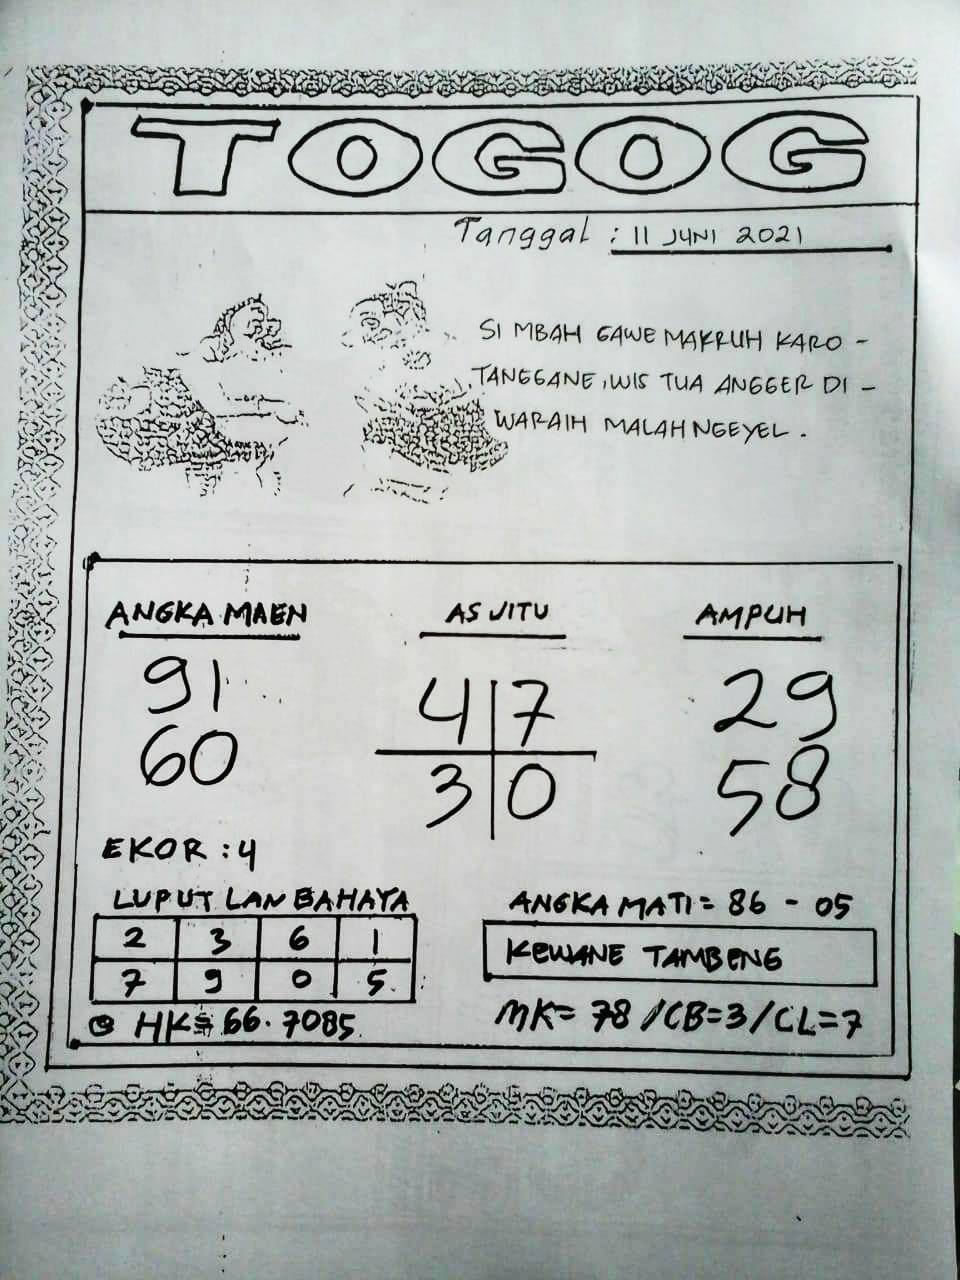 TOGOG
Tanggal : 11 JUNI 2021
SI MBAH GAWE MAKRUH KARO -
TANGGANE, WIS TUA ANGGER DI -
WARAIH MALAH NGEYEL.
ANGKA MAEN
91
60
AS JITU
4 7
3 0
AMPUH
29
58
EKOR : 4
LUPUT LAN BAHAYA
2 3 6 1
7 9 0 5
HK = 66. 7085
ANGKA MATI = 86 - 05
KEWANE TAMBENG
MK = 78 / CB = 3 / CL = 7